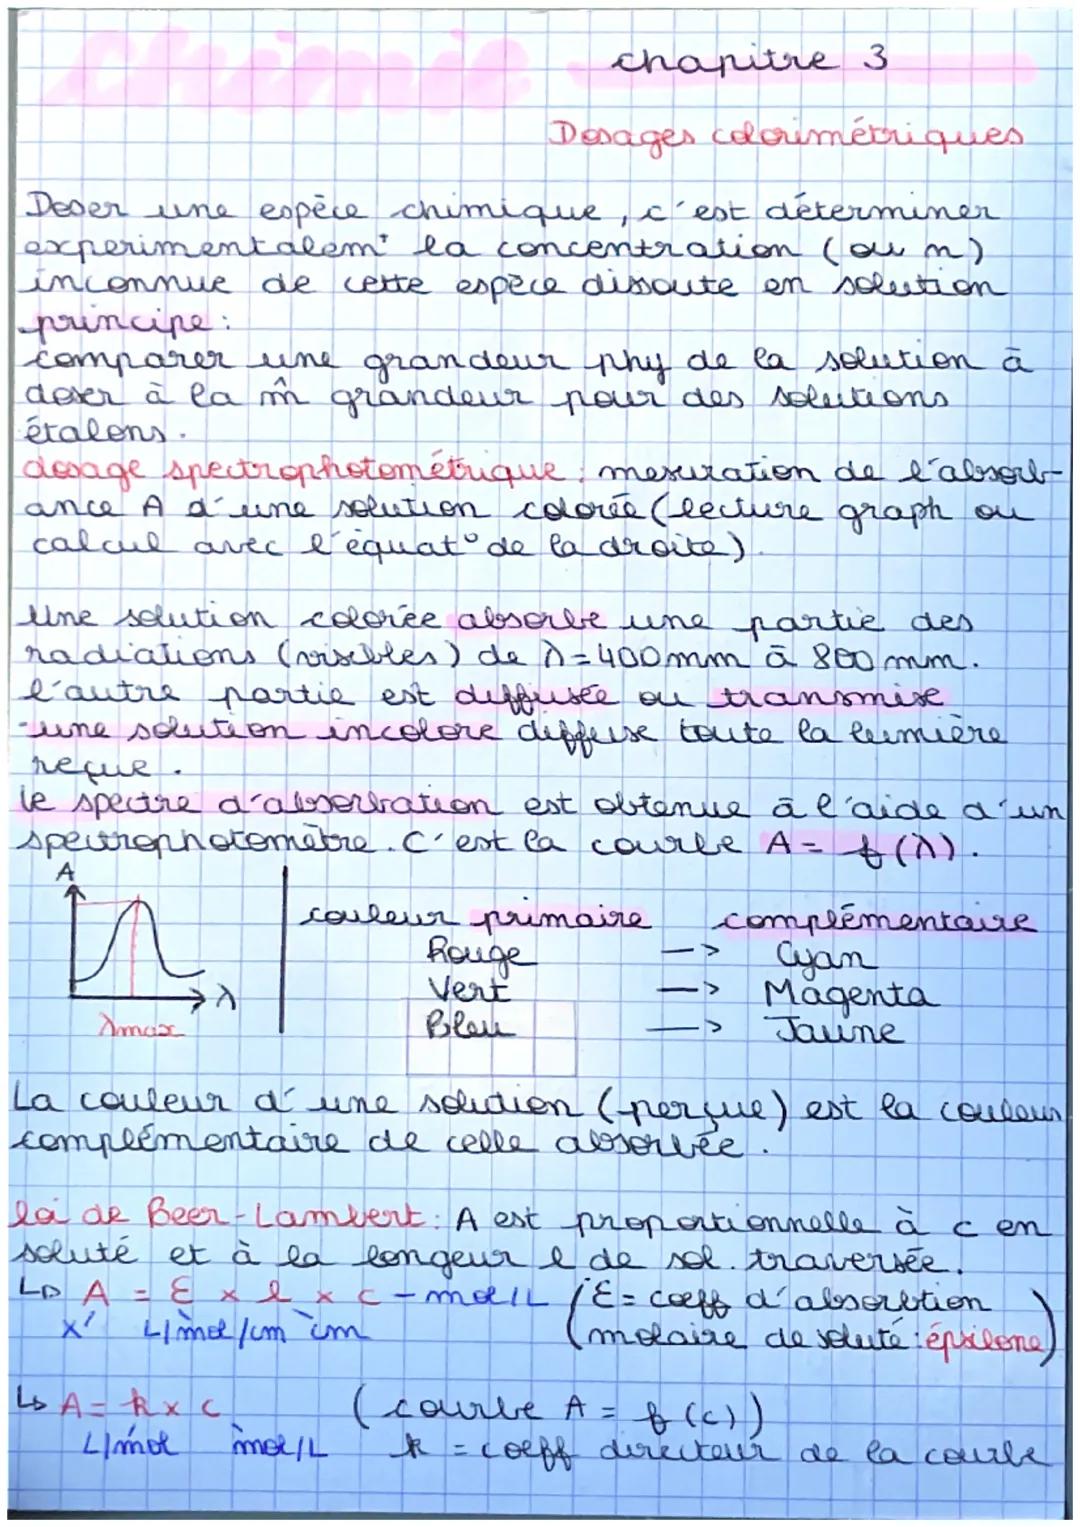 chimie
chapitre 3
Dosages colorimétriques
Doser une espèce chimique, c'est déterminer
experimentalemt la concentration (ou n)
inconnue de cette espèce dissoute en solution
principe :
comparer une grandeur phy de la solution à
doser à la m̂ grandeur pour des solutions
étalons.
dosage spectrophotométrique : mesuration de l'absorb-
ance A d'une solution colorée (lecture graph ou
calcul avec l'équat° de la droite).
Une solution colorée absorbe une partie des
radiations (visibles) de λ=400mm à 800mm.
l'autre partie est diffusée ou transmise
-une solution incolore diffuse toute la lumière
reçue.
le spectre d'absorbation est obtenue à l'aide d'un
spectrophotomètre. C'est la courbe A= f(λ).
A
λ
λmax
couleur primaire complémentaire
Rouge --> Cyan
Vert --> Magenta
Bleu --> Jaune
La couleur d'une solution (perçue) est la couleur
complémentaire de celle absorbée.
loi de Beer-Lambert : A est proportionnelle à c en
soluté et à la longeur l de sol. traversée.
↳ A = ε x l x c - mol/L (ε = coeff d'absorbtion
X' L/mol/cm cm molaire de soluté : épsilone)
↳ A = k x c (courbe A = f(c))
L/mol mol/L k = coeff directeur de la courbe